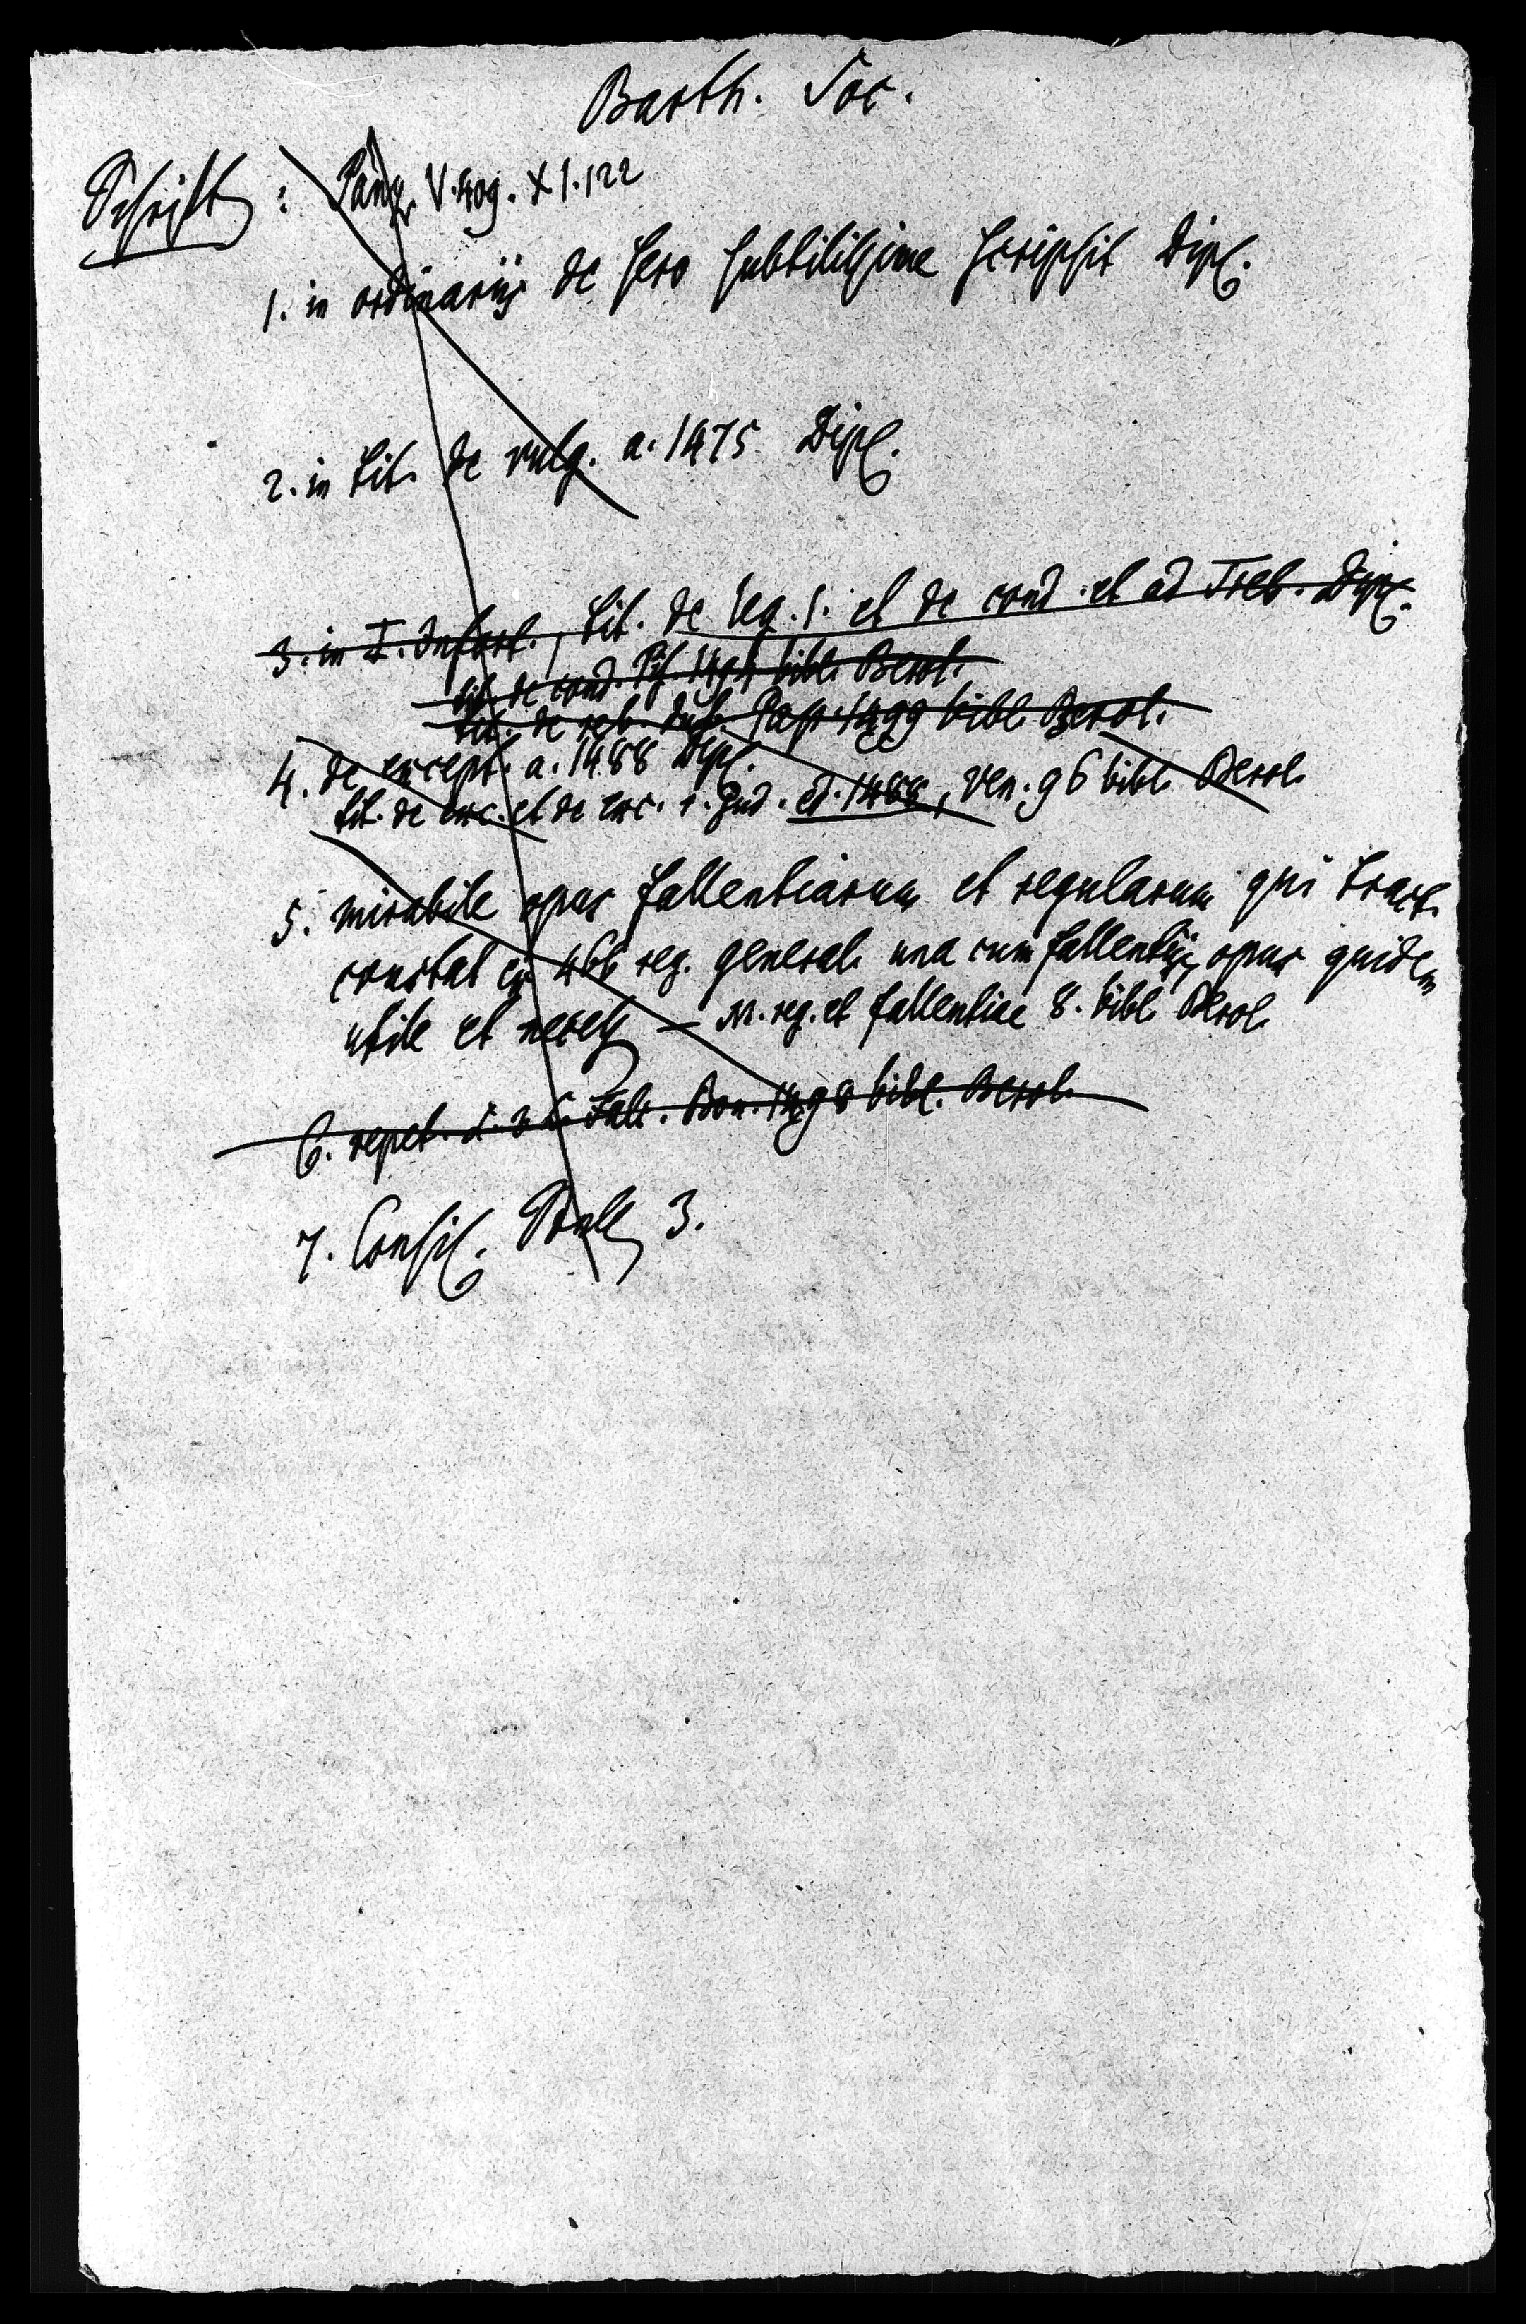 Barth. Soc.
Schrift : Panz. V. 409. XI. 122
1. in ordinariis de sero subtilissime scripsit Dipl.
2. in tit. de vulg. a. 1475. Dipl.
3. in I. Infort., tit. de leg. 1. et de cond. et ad Treb. Dipl.
tit. de cond. Pis. 1494 bibl. Berol.
tit. de reb. dub. Pap. 1499 bibl. Berol.
4. de except. a. 1488 Dipl.
tit. de exc. et de exc. r. jud. ed. 1488, Ven. 96 bibl. Berol.
5. mirabile opus fallentiarum et regularum qui tract.
constat ex 466 reg. general. una cum fallentiis, opus quidem
utile et — M. reg. et fallentiae 8. bibl. Berol.
6. repet. Bon. 1498 bibl. Berol.
7. Consil. 3.